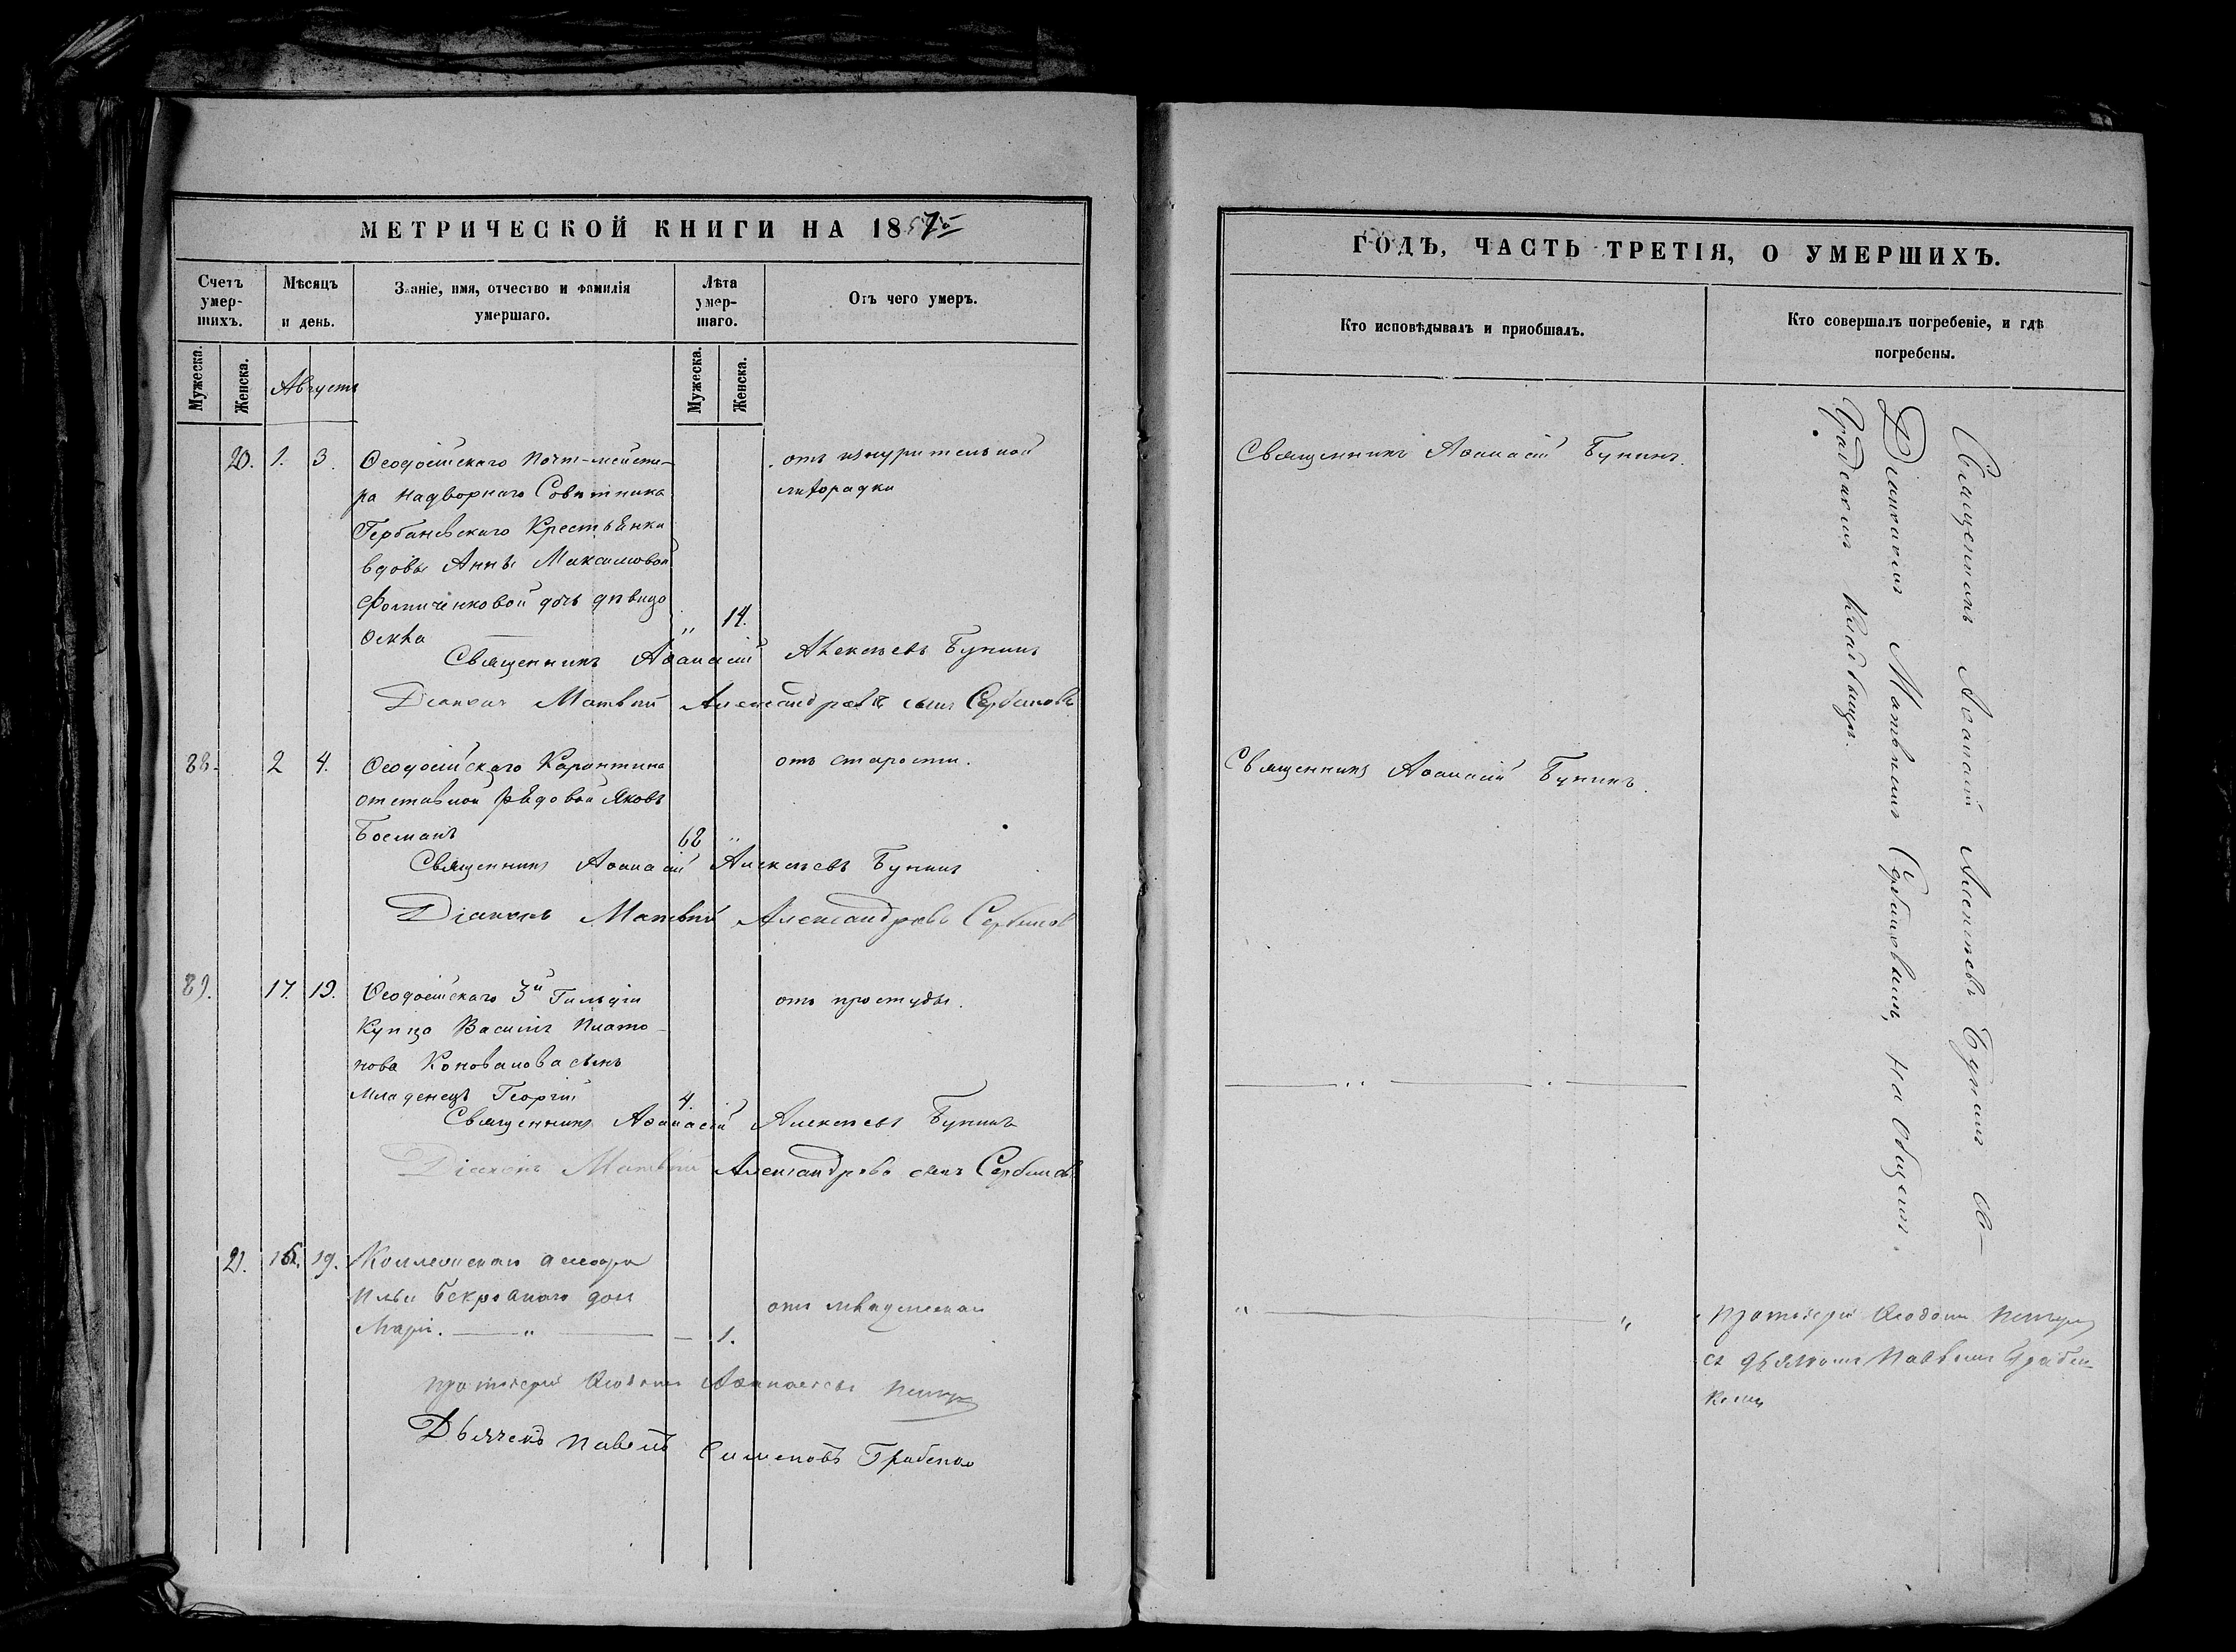 МЕТРИЧЕСКОЙ КНИГИ НА 18 7
Счетъ умер-шихъ.
Мѣсяцъ и день.
Званіе, имя, отчество и фамилія умершаго.
Лѣта умер-шаго.
Отъ чего умеръ.
Мужеска.
Женска.
Августъ
Мужеска.
Женска.
20. 1. 3. Ѳеодосійскаго Почт-мейсте-
ра Надворнаго Совѣтника
Крестьянки
вдовы Анны Максимовой
Фомиченковой дочь дѣвица
„ 14.
отъ изнурительной
лихорадки
Священникъ Аѳанасій Алексѣевъ Бунинъ
Діаконъ Матвѣй Александровъ сынъ Сербиновъ
88. 2 4. Ѳеодосійскаго Карантина
отставной рядовой Яковъ
Боеманъ 68 „
отъ старости.
Священникъ Аѳанасій Алексѣевъ Бунинъ
Діаконъ Матвѣй Александровъ Сербинов
89. 17. 19. Ѳеодосійскаго 3й Гильдіи
Купца Василія Плато-
нова Коновалова сынъ
Младенецъ Георгій 4.
отъ простуды.
Священникъ Аѳанасій Алексѣевъ Бунинъ
Діаконъ Матвѣй Александровъ сынъ Сербиновъ
21. 19. Коллежскаго
Ильи дочь
Марія. — „ — — 1.
отъ младенческой
Протоіерей Аѳанасьевъ
Дьячекъ Павелъ Симеоновъ
ГОДЪ, ЧАСТЬ ТРЕТІЯ, О УМЕРШИХЪ.
Кто исповѣдывалъ и приобщалъ.
Кто совершалъ погребеніе, и гдѣ
погребены.
Священникъ Аѳанасій Бунинъ.
Священникъ Аѳанасій Бунинъ.
Священникъ Аѳанасій Алексѣевъ Бунинъ съ
Діакономъ Матвѣемъ Сербиновымъ, на общемъ
Градскомъ Кладбищѣ.
Протоіерей
съ дьячкомъ Павломъ